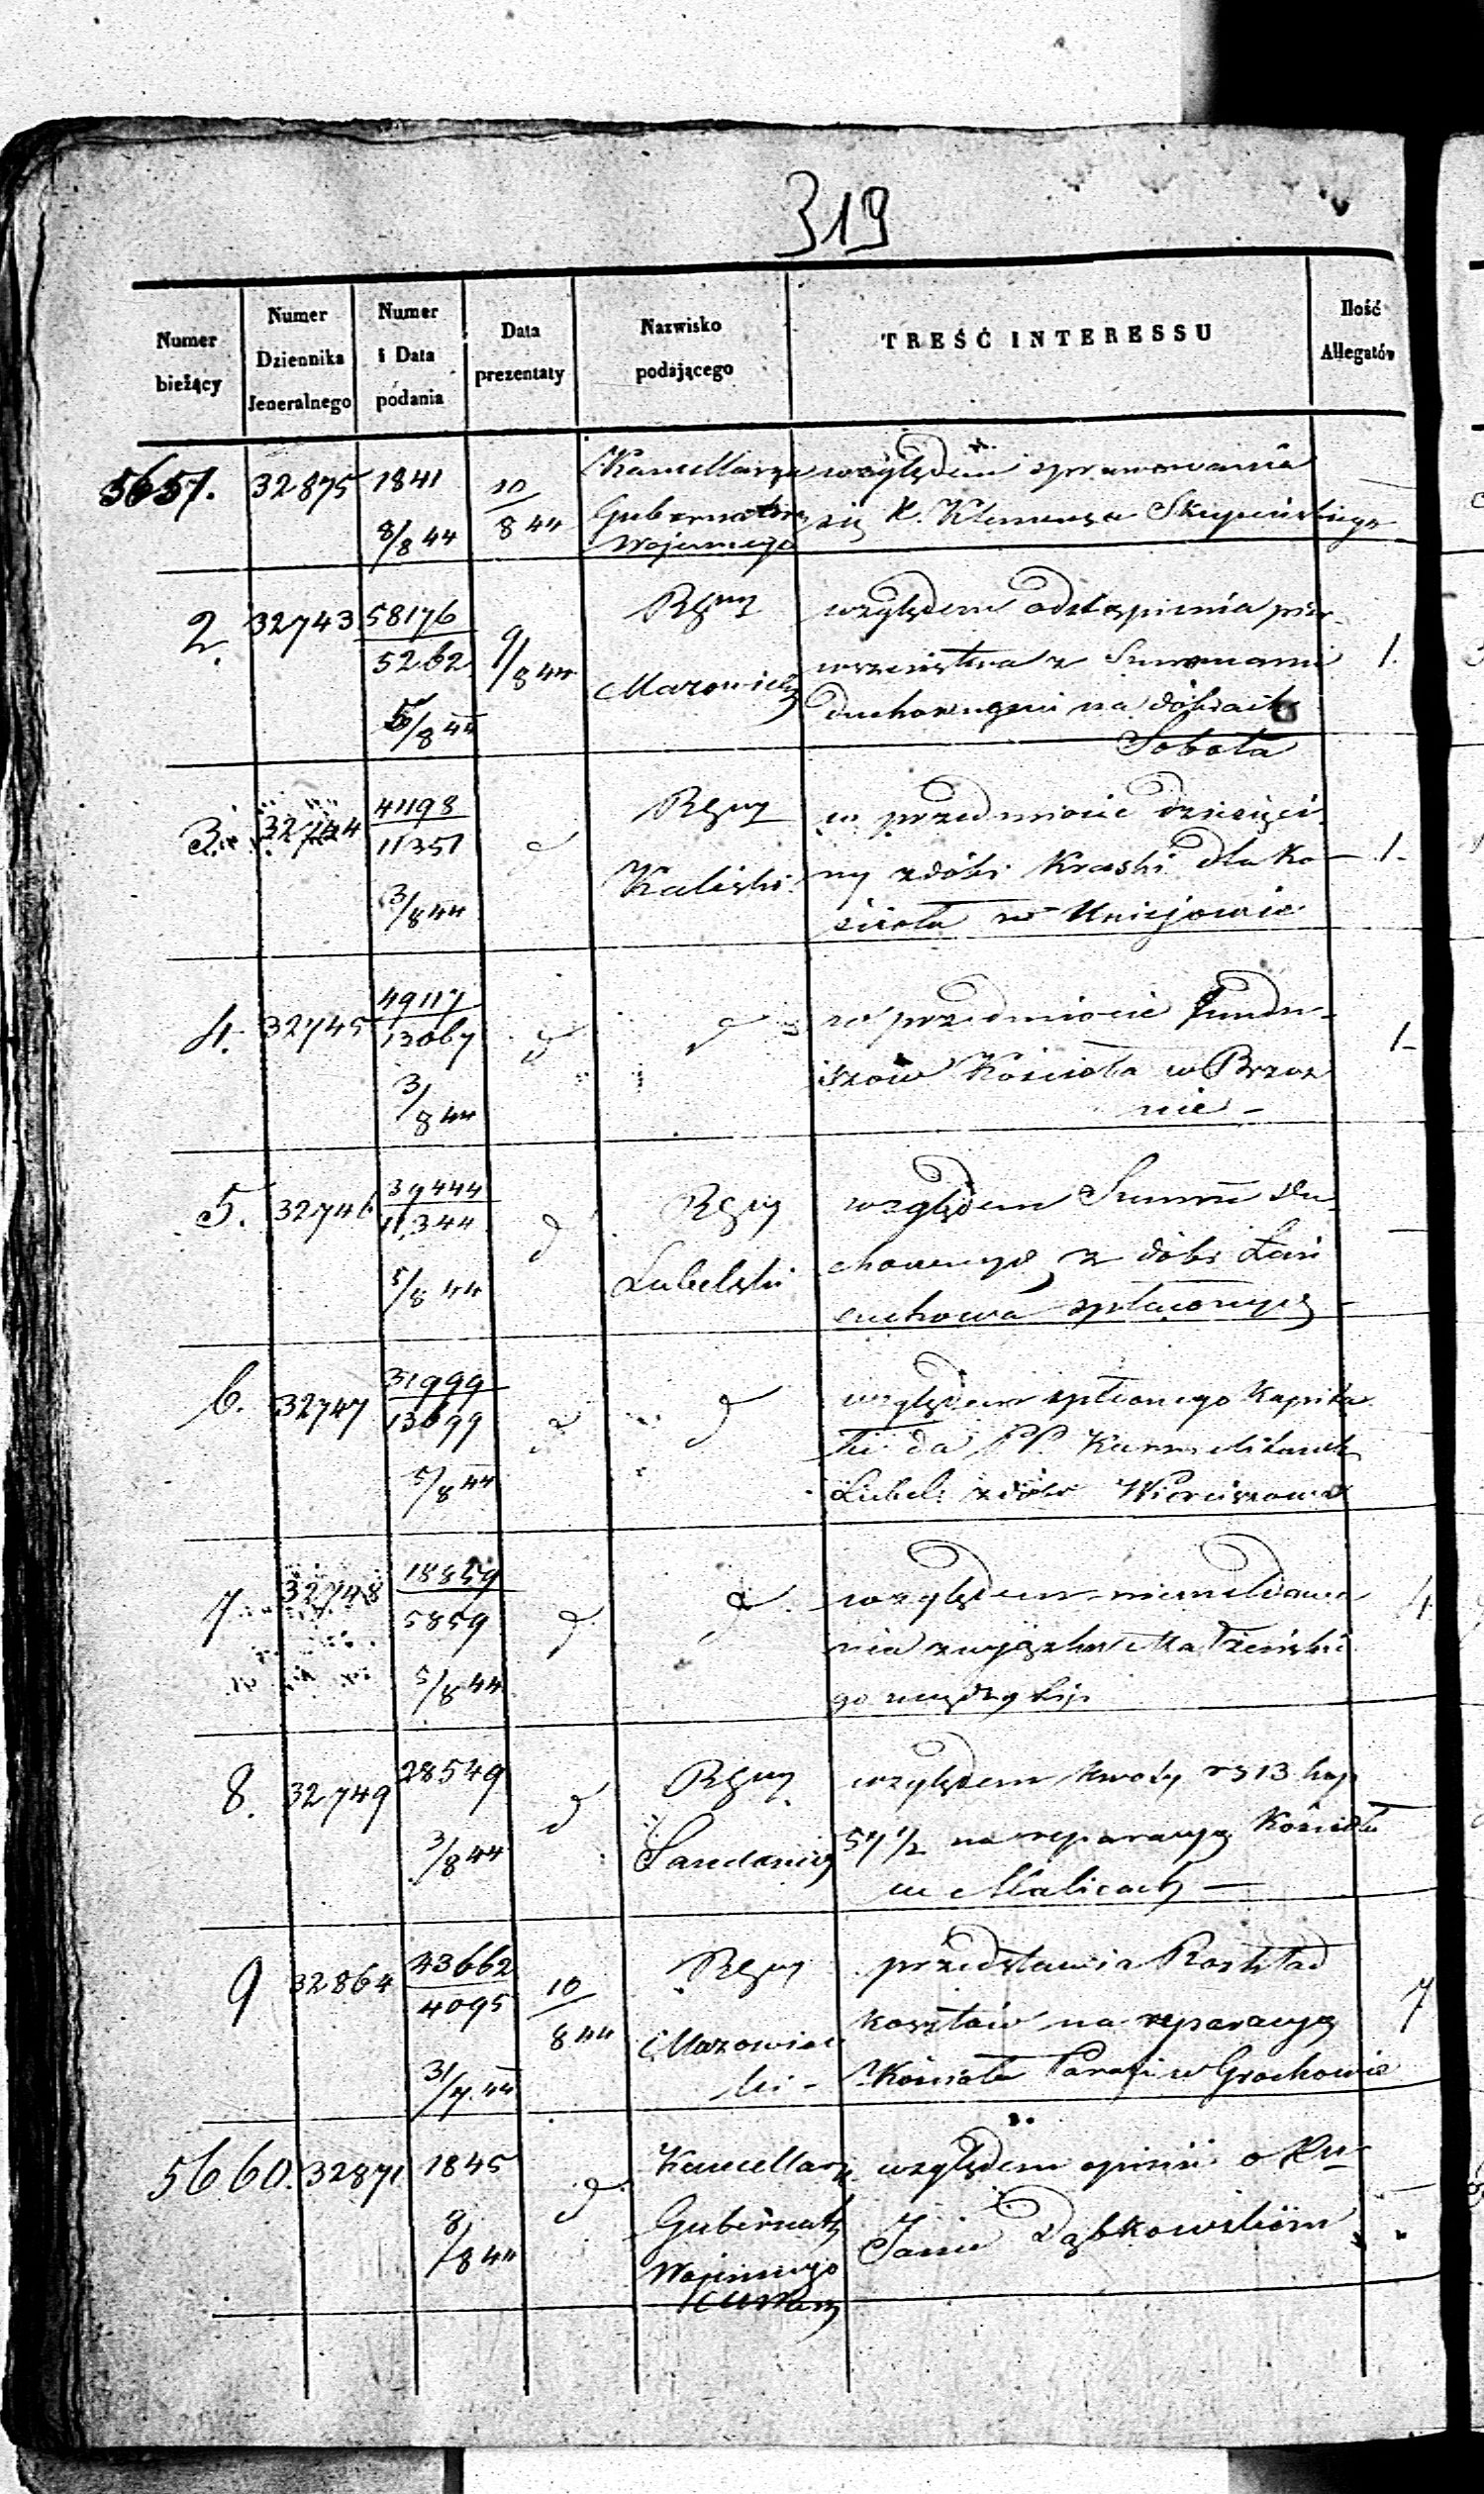 319
Numer bieżący
Numer Dziennika Jeneralnego
Numer i Data podania
Data prezentaty
Nazwisko podającego
TREŚĆ INTERESSU
Ilość Allegatów
5651. 32875 1841 10 Kancellarya względem sprawowania
8/8 44 8 44 Gubernatora się X. Klemensa Skupińskiego
Wojennego
2. 32743 58176 Rząd względem odstąpienia pier-
5262 9/8 44 Mazowiecki wszeństwa z Summami 1.
5/8 44 duchownymi na dobrach
Sobota
3. 32744 41198 Rząd w przedmiocie dziesięci
11351 d Kaliski ny z dóbr Kraski dla Ko- 1-
3/8 44 ścioła w Uniejowie
4. 32745 49117 w przedmiocie fundu-
13067 d d szów Kościoła w Brzez 1-
3/8 44 nie -
5. 32746 39444 Rząd względem Summ du
11,344 d Lubelski chownych z dóbr Łań
5/8 44 cuchowa spłaconych
6. 32747 31999 względem spłconego Kapita
13699 d d łu da PP. Karmelitanek
5/8 44 Lubel: z dóbr
7 32748 18859 względem
5859 d d nia związku Małżeński 4
5/8 44 go między
8. 32749 28549 Rząd względem kwoty rs 13 kop
d 57 1/2 na reparacyą Kościoła
3/8 44 w Malicach -
9 32864 43662 Rząd przedstawia Rozkład
4095 10 Mazowiec kosztów na reparacyą 7
31/7. 44 8 44 ki - Kościoła Parafi w Grochowie
5660. 32871 1845 Kancellarya względem opinii o Xu
8/8 44 d Gubernato Janie Dąbkowskim "
Wojennego